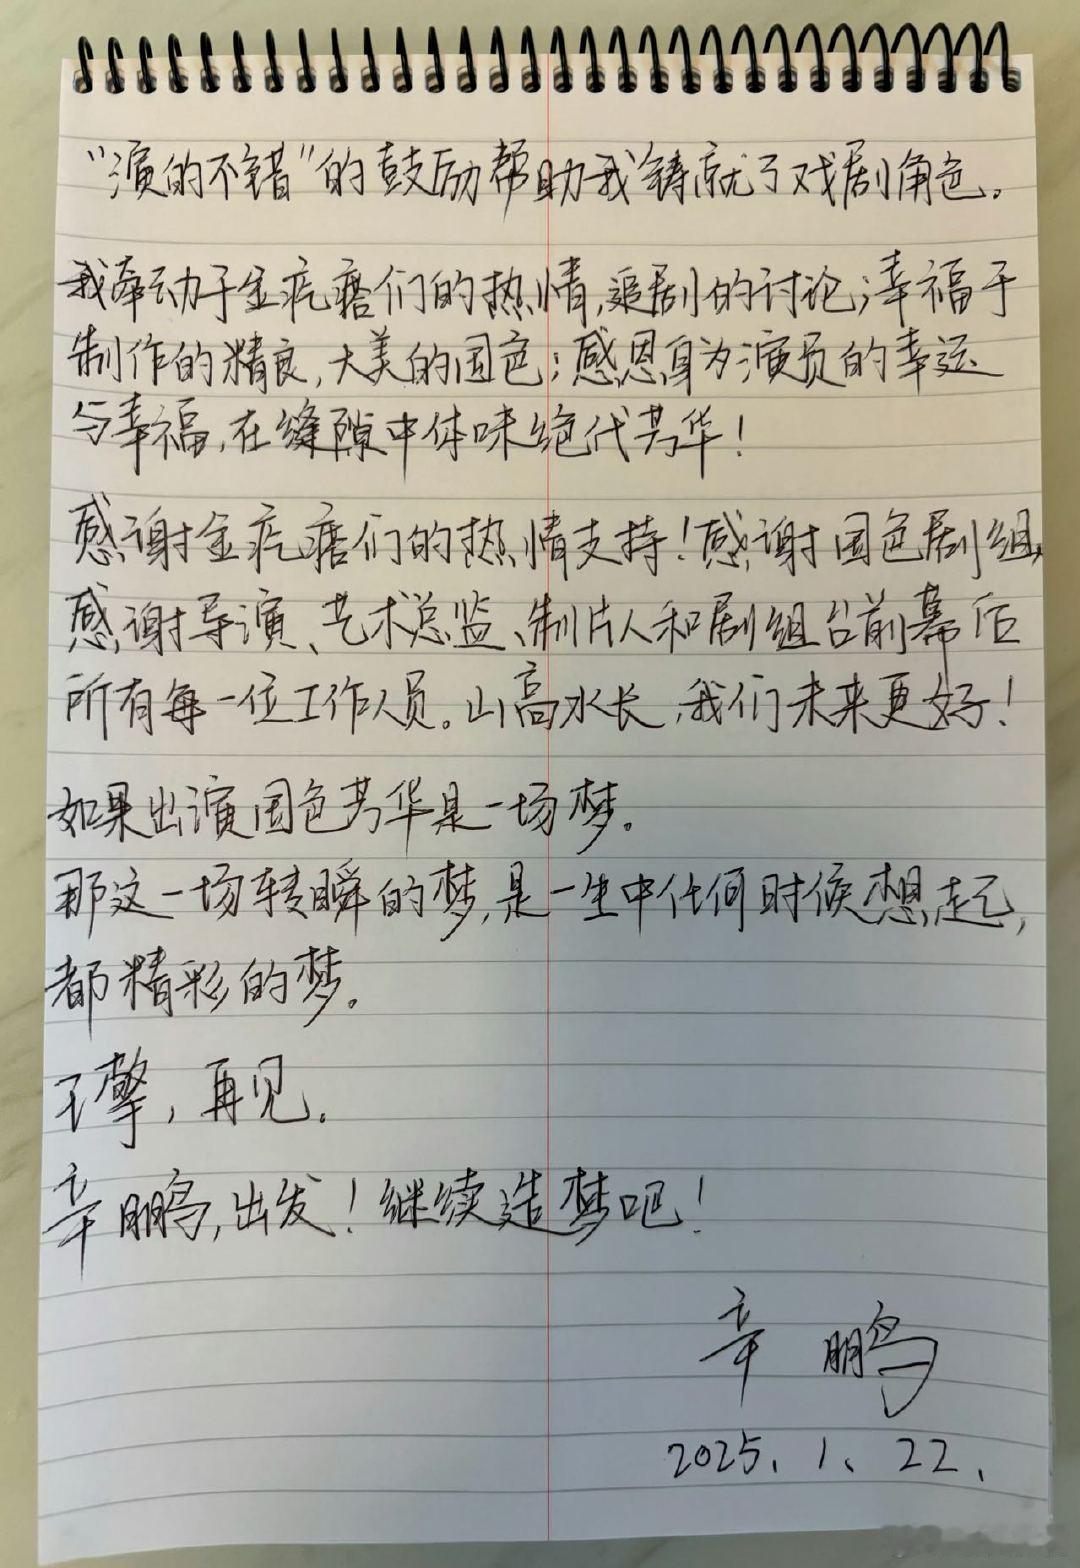 “演的不错”的鼓励帮助我铸就了戏剧角色。
我牵动于金疙瘩们的热情,追剧的讨论;幸福于
制作的精良,大美的国色;感恩身为演员的幸运
与幸福,在缝隙中体味绝代芳华!
感谢金疙瘩们的热情支持!感谢国色剧组,
感谢导演、艺术总监、制片人和剧组台前幕后
所有每一位工作人员。山高水长,我们未来更好!
如果出演国色芳华是一场梦。
那这一场转瞬的梦,是一生中任何时候想起,
都精彩的梦。
擎,再见。
辛鹏,出发!继续造梦吧!
辛 鹏
2025、1、22、